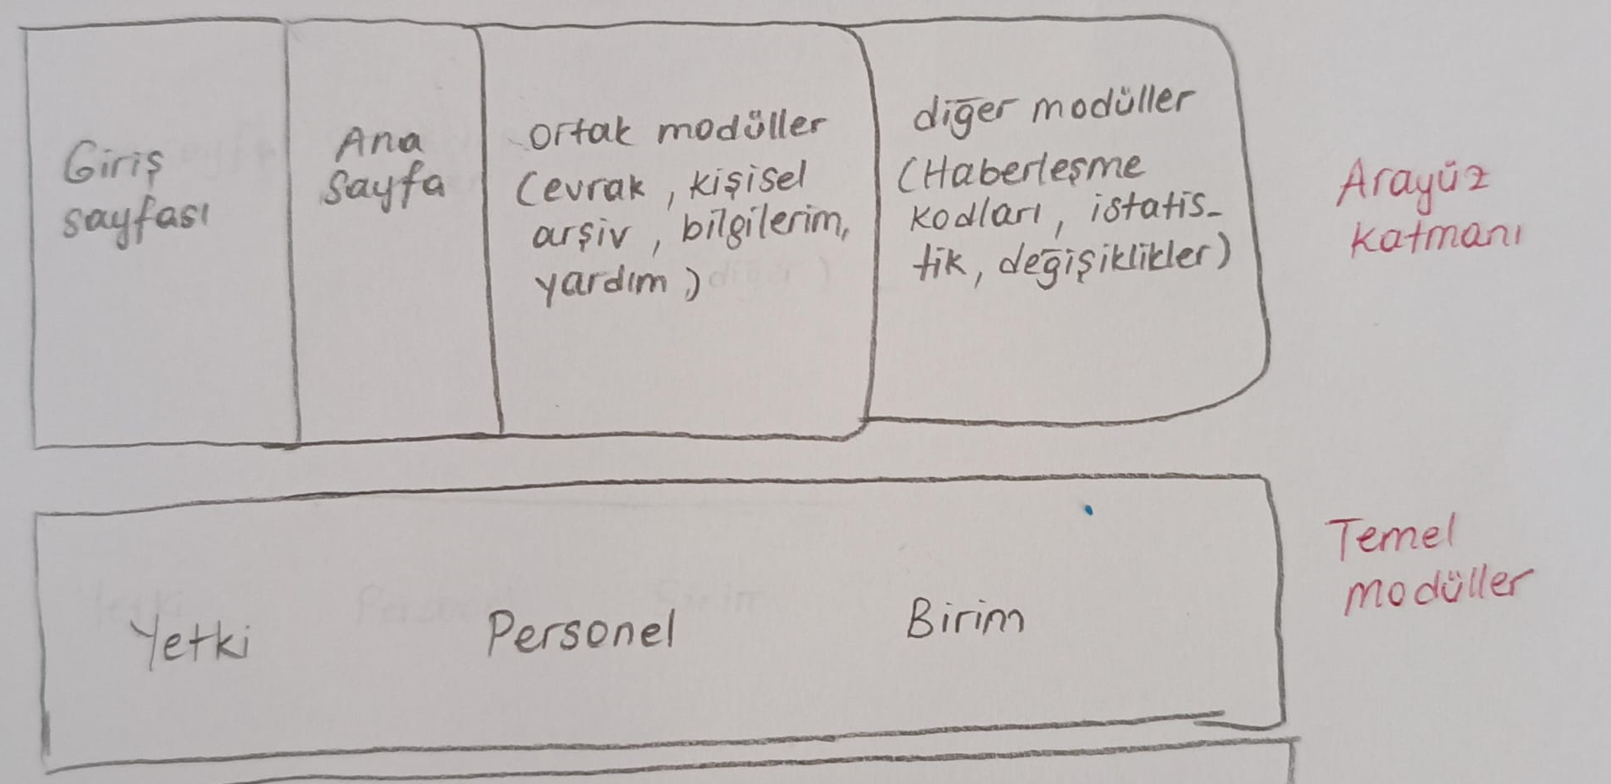 Giriş
sayfası
Ana
Sayfa
Ortak modüller
(evrak, kişisel
arşiv, bilgilerim,
yardım)
diğer modüller
(Haberleşme
kodları, istatis-
tik, değişiklikler)
Arayüz
Katmanı
Yetki
Personel
Birim
Temel
modüller